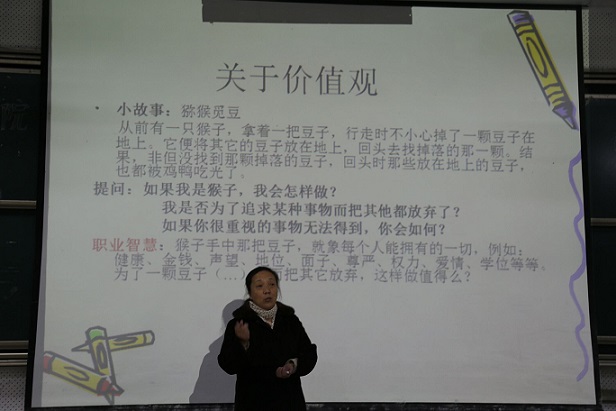 关于价值观
• 小故事：猕猴觅豆
从前有一只猴子，拿着一把豆子，行走时不小心掉了一颗豆子在
地上。它便将其它的豆子放在地上，回头去找掉落的那一颗。结
果，非但没找到那颗掉落的豆子，回头时那些放在地上的豆子，
也都被鸡鸭吃光了。
提问：如果我是猴子，我会怎样做？
我是否为了追求某种事物而把其他都放弃了？
如果你很重视的事物无法得到，你会如何？
职业智慧：猴子手中那把豆子，就象每个人能拥有的一切，例如：
健康、金钱、声望、地位、面子、尊严、权力、爱情、学位等等。
为了一颗豆子（…）而把其它放弃，这样做值得么？
院